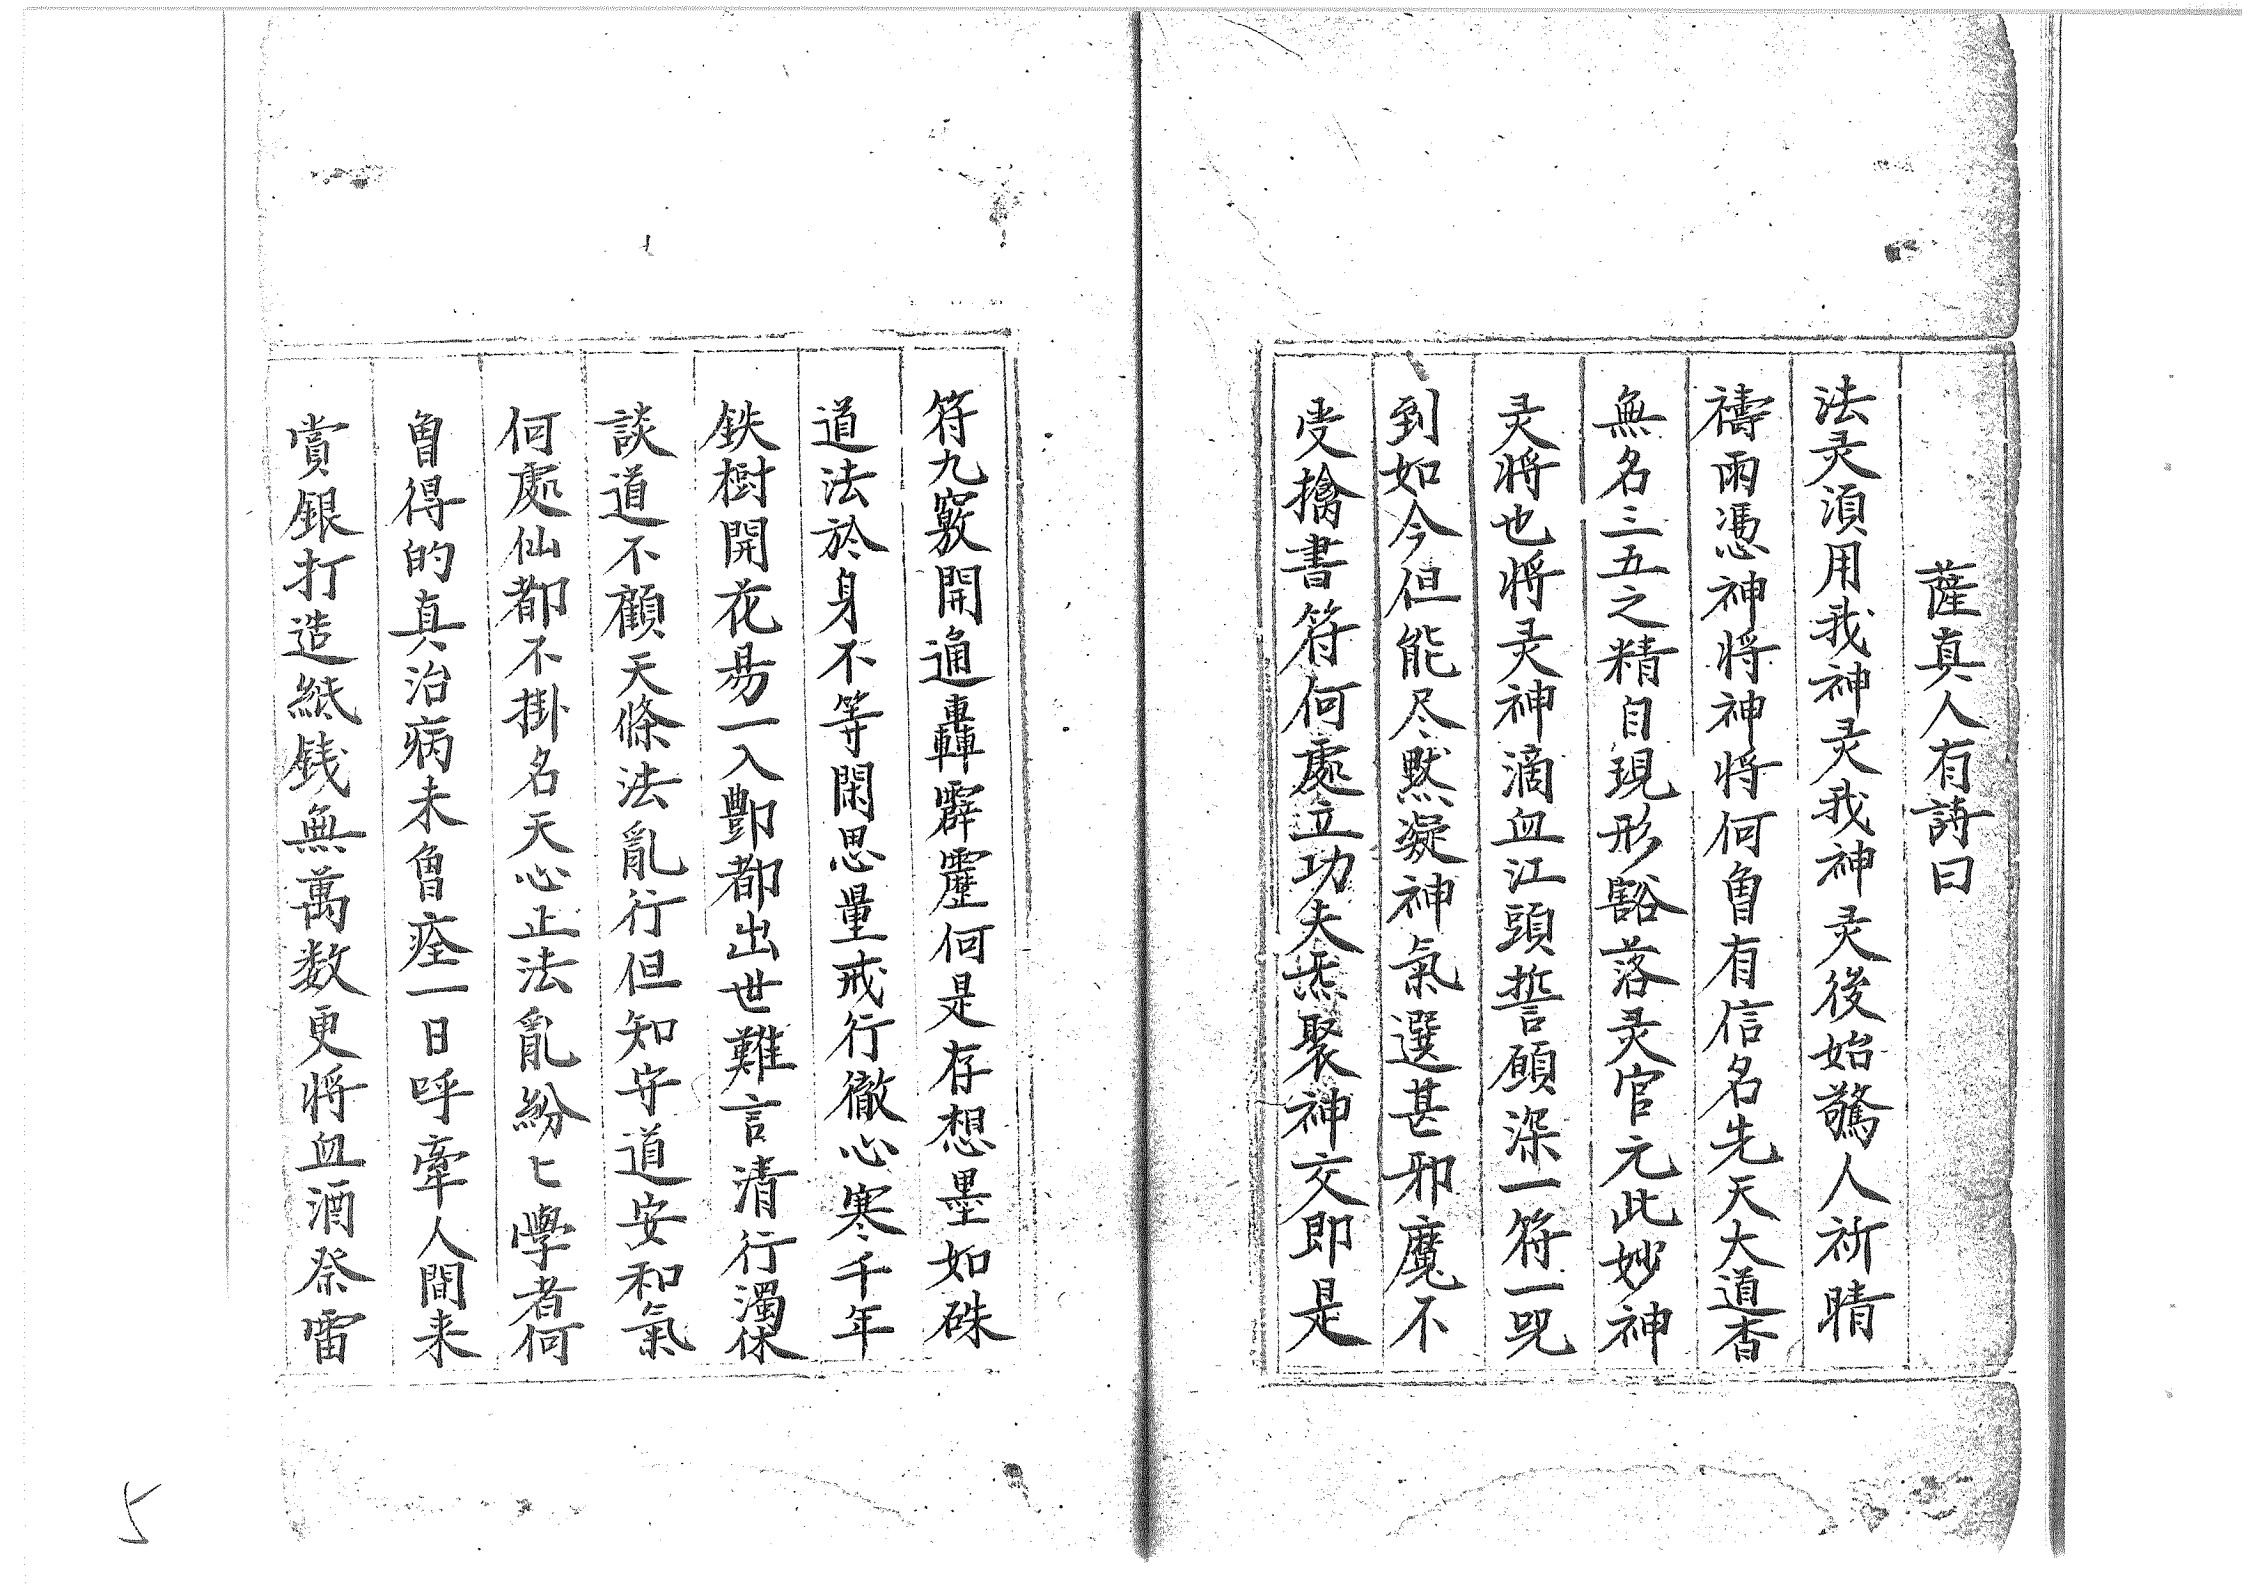 薩真人有詩曰
法灵須用我神灵我神灵後始驚人祈晴
禱雨憑神将神将何曾有信名先天大道杳
無名三五之精自現形豁落灵官元此妙神
灵将也将灵神滴血江頭誓願深一符一咒
到如今但能尽黙凝神氣選甚邪魔不
受擒書符何處立功夫炁聚神交即是
符九竅開通轟霹靂何是存想墨如硃
道法於身不等閑思量戒行徹心寒千年
鉄樹開花易一入酆都出世難言清行濁休
談道不顧天條法亂行但知守道安和氣
何處仙都不掛名天心正法亂紛匕學者何
曾得的真治病未曾痊一日呼牽人間来
賞銀打造紙銭無萬数更将血酒祭雷
5